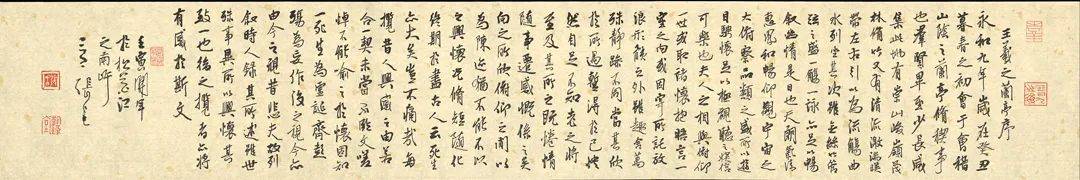 王羲之蘭亭序
永和九年歲在癸丑
暮春之初會于會稽
山陰之蘭亭脩稧事
也群賢畢至少長咸
集此地有崇山峻嶺茂
林脩竹又有清流激湍暎
帶左右引以為流觴曲
水列坐其次雖無絲竹管
弦之盛一觴一詠亦足以暢
叙幽情是日也天朗氣清
惠風和暢仰觀宇宙之
大俯察品類之盛所以遊
目騁懷足以極視聽之娛信
可樂也夫人之相與俯仰
一世或取諸懷抱晤言一
室之內或因寄所託放
浪形骸之外雖趣舍萬
殊靜躁不同當其欣
於所遇暫得於己快
然自足不知老之將
至及其所之既惓情
隨事遷感慨係之矣
向之所欣俯仰之間以
為陳迹猶不能不以
之興懷況脩短隨化
終期於盡古人云死生
亦大矣豈不痛哉每
攬昔人興感之由若
合一契未嘗不臨文嗟
悼不能喻之於懷固知
一死生為虛誕齊彭
殤為妄作後之視今亦
由今之視昔悲夫故列
叙時人錄其所述雖世
殊事異所以興懷其
致一也後之攬者亦將
有感於斯文
壬寅開年
於松花江
之南岸
張